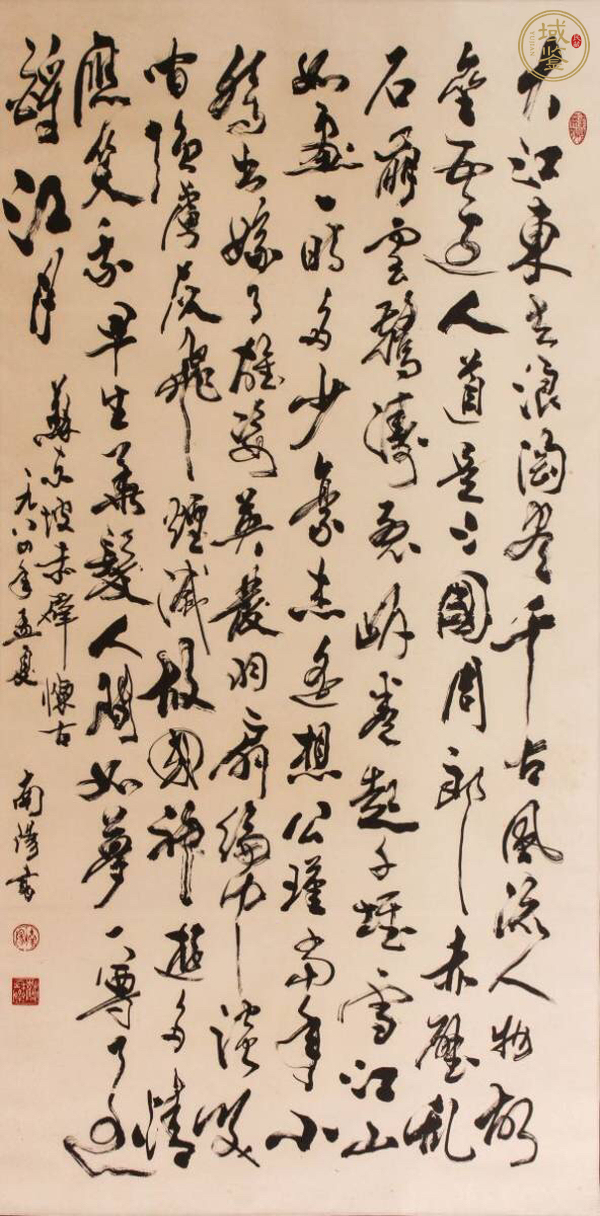 大江東去浪淘盡千古風流人物故
壘西邊人道是三國周郎赤壁乱
石崩雲驚濤裂岸卷起千堆雪江山
如畫一時多少豪杰遙想公瑾當年小
喬出嫁了雄姿英發羽扇綸巾談笑
間強虜灰飛煙滅故國神遊多情
應笑我早生華髮人間如夢一尊還
酹江月
蘇東坡赤壁懷古
一九八四年孟夏
南陽書
域鉴